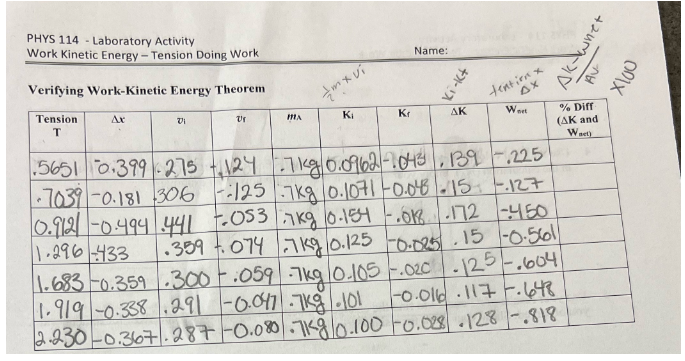 PHYS 114 - Laboratory Activity
Work Kinetic Energy – Tension Doing Work Name:
½m × vi Ki-Kf tension × Δx ΔK-Wnet / AV X100
Verifying Work-Kinetic Energy Theorem
Tension T Δx vi vf mA Ki Kf ΔK Wnet % Diff (ΔK and Wnet)
.5651 -0.399 .275 -.124 .7kg 0.0962 -.043 .139 -.225
.7039 -0.181 .306 -.125 .7kg 0.1071 -0.043 .15 -.127
0.9121 -0.494 .441 -.053 .7kg 0.154 -.018 .172 -.450
1.296 -.433 .359 -.074 .7kg 0.125 -0.025 .15 -0.561
1.683 -0.359 .300 -.059 .7kg 0.105 -.020 .125 -.604
1.919 -0.338 .291 -0.047 .7kg .101 -0.016 .117 -.648
2.230 -0.367 .287 -0.080 .7kg 0.100 -0.028 .128 -.818